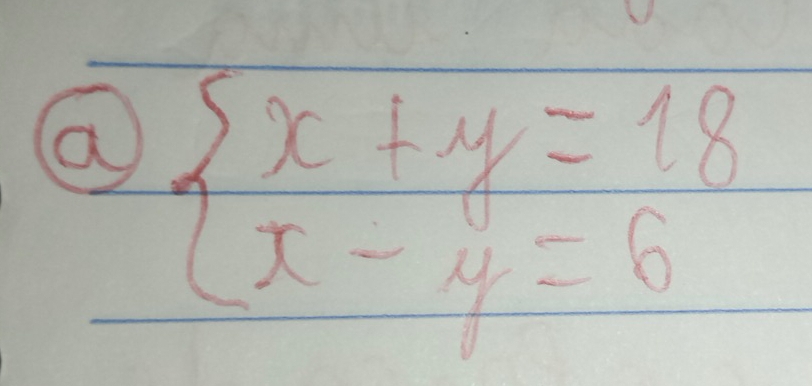 ⓐ { x + y = 18
x - y = 6